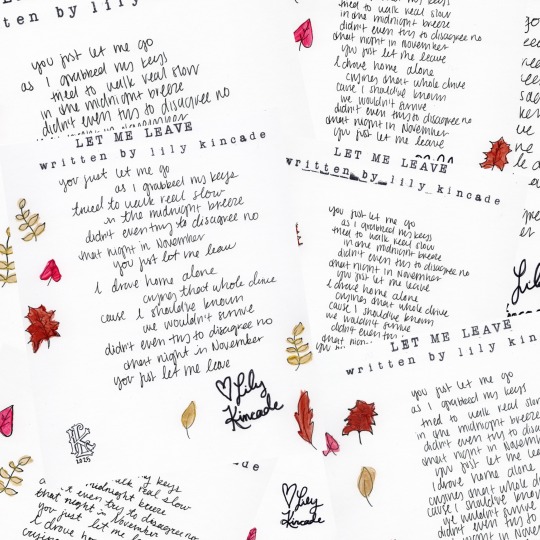 ten by lily
you just let me go
as I grabbed my keys
tried to walk real slow
in the midnight breeze
didn't even try to disagree no
LET ME LEAVE
written by lily kincade
you just let me go
as I grabbed my keys
tried to walk real slow
in the midnight breeze
didn't even try to disagree no
that night in November
you just let me leave
I drove home alone
crying that whole drive
cause I should've known
we wouldn't survive
didn't even try to disagree no
that night in November
you just let me leave
Lily
Kincade
2025
de
my keys
walk real slow
midnight breeze
t even try to disagree no
that night in November
you just let me
I drove ho
tried to walk real slow
in the midnight breeze
didn't even try to disagree no
that night in November
you just let me leave
I drove home alone
crying that whole drive
cause I should've known
we wouldn't survive
didn't even try to disagree no
that night in November
you just let me leave
LET ME LEAVE
written by lily kincade
you just let me go
as I grabbed my keys
tried to walk real slow
in the midnight breeze
didn't even try to disagree no
that night in November
you just let me leave
I drove home alone
crying that whole drive
cause I should've known
we wouldn't survive
didn't even try to
that night
LET ME LEAVE
written by lily kin
you just let me go
as I grabbed my keys
tried to walk real slow
in the midnight breeze
didn't even try to disag
that night in November
you just let me lea
I drove home alone
crying that whole dr
cause I should've known
we wouldn't survive
didn't even try to
that night in Novem
Lily
Kincade